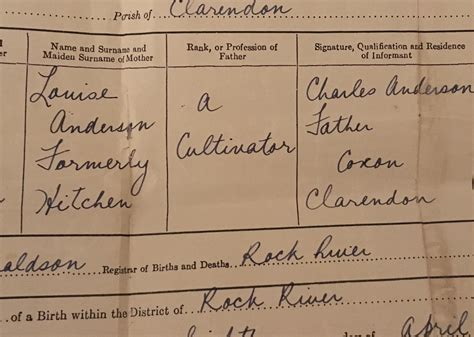 Parish of Clarendon
Name and Surname and Maiden Surname of Mother
Rank, or Profession of Father
Signature, Qualification and Residence of Informant
Louise
Anderson
Formerly
Hitchen
A
Cultivator
Charles Anderson
Father
Coxon
Clarendon
aldson Registrar of Births and Deaths. Rock River
of a Birth within the District of Rock River
day of April